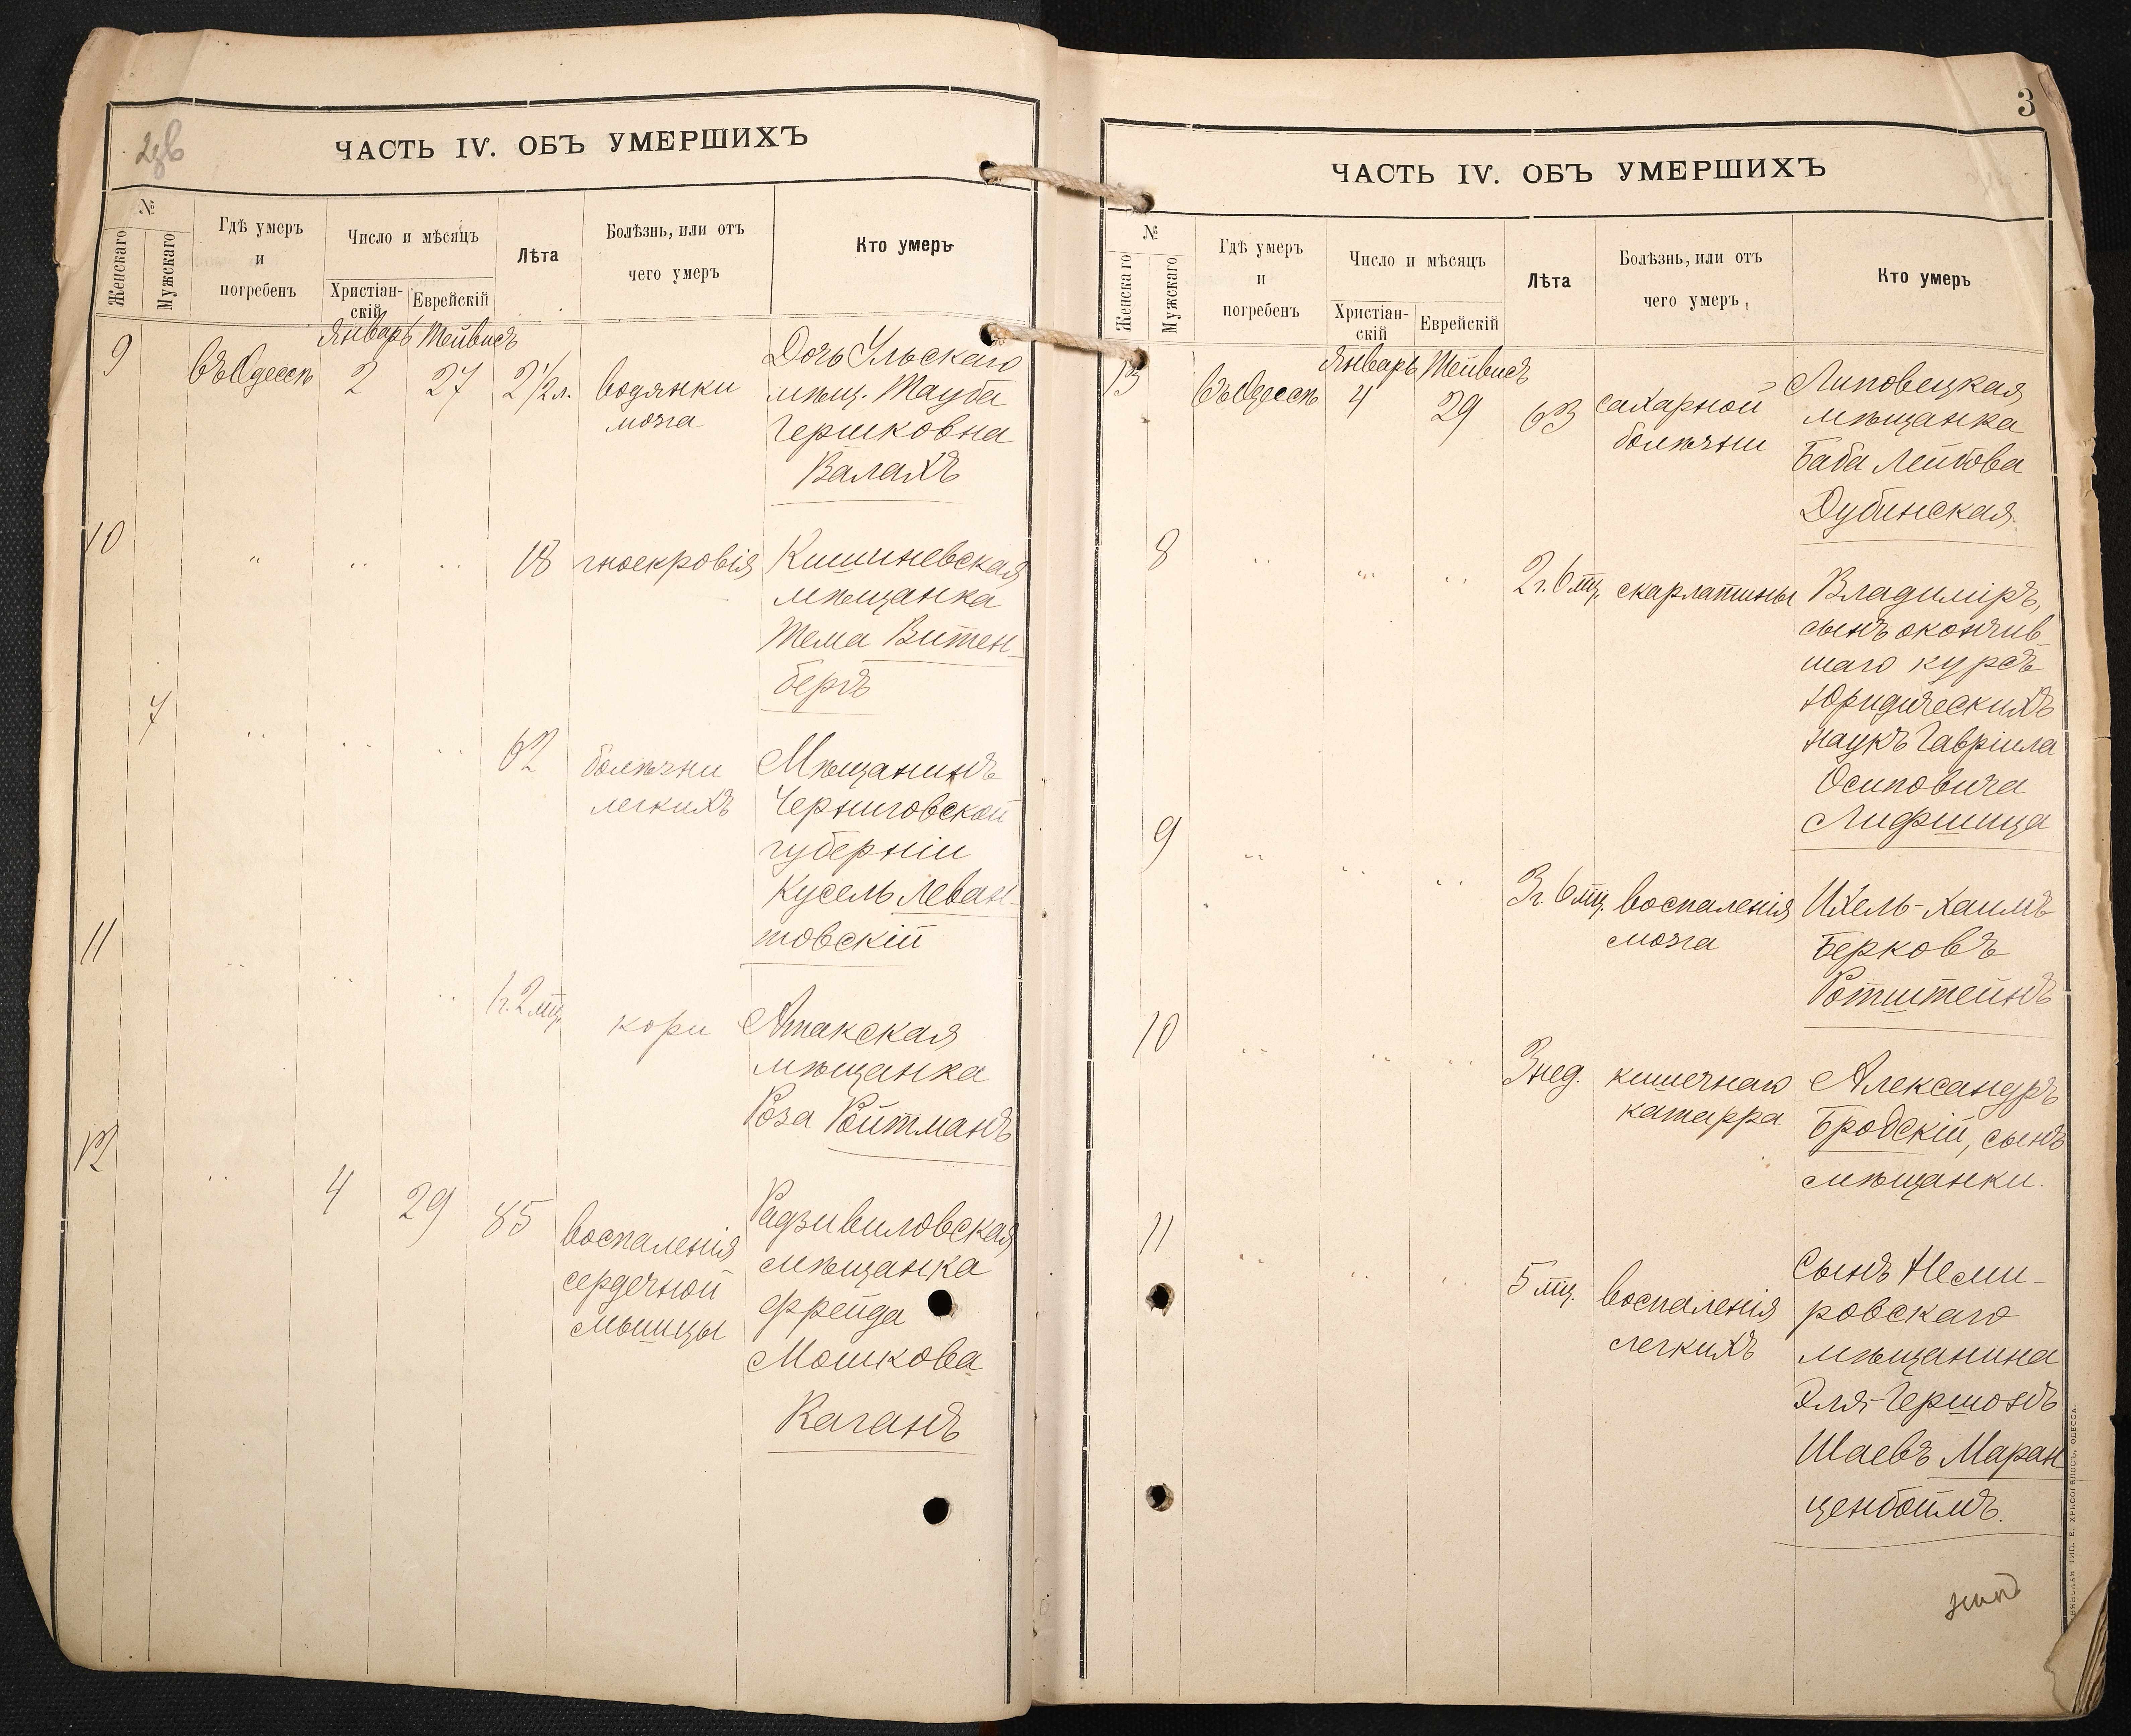 2зв
ЧАСТЬ IV. ОБЪ УМЕРШИХЪ
№
Женскаго
Мужскаго
Гдѣ умеръ
и
погребенъ
Число и мѣсяцъ
Христіан-
скій
Еврейскій
Лѣта
Болѣзнь, или отъ
чего умеръ
Кто умеръ
Январь Тейвисъ
9 въ Одессѣ 2 27 2 1/2 л. водянки
мозга
Дочь Ульскаго
мѣщ. Тауба
Гершковна
Валахъ
10 " " " 18 гноекровія
Кишиневская
мѣщанка
Тема Витен-
бергъ
7 " " " 62 болѣзни
легкихъ
Мѣщанинъ
Черниговской
губерніи
Кусель Леван-
товскій
11 " " " 1 г. 2 мц. кори
Атакская
мѣщанка
Роза Ройтманъ
12 " 4 29 85 воспаленія
сердечной
мышцы
Радзивиловская
мѣщанка
Фрейда
Мошкова
Каганъ
3
ЧАСТЬ IV. ОБЪ УМЕРШИХЪ
№
Женскаго
Мужскаго
Гдѣ умеръ
и
погребенъ
Число и мѣсяцъ
Христіан-
скій
Еврейскій
Лѣта
Болѣзнь, или отъ
чего умеръ
Кто умеръ
Январь Тейвисъ
13 въ Одессѣ 4 29 63 сахарной
болѣзни
Липовецкая
мѣщанка
Баба Лейбова
Дубинская.
8 " " " 2 г. 6 мц. скарлатины
Владиміръ,
сынъ окончив-
шаго курсъ
Юридическихъ
наукъ Гавріила
Осиповича
Лифшица
9 " " " 3 г. 6 мц. воспаленія
мозга
Ихель-Хаимъ
Берковъ
Ротштейнъ
10 " " " 3 нед. кишечнаго
катарра
Александръ
Бродскій, сынъ
мѣщанки.
11 " " " 5 мц. воспаленія
легкихъ
Сынъ Неми-
ровскаго
мѣщанина
Эля-Гершонъ
Шаевъ Маран-
ценбоймъ.
ТИП. Е. ХРИСОГЕЛОСЪ, ОДЕССА.